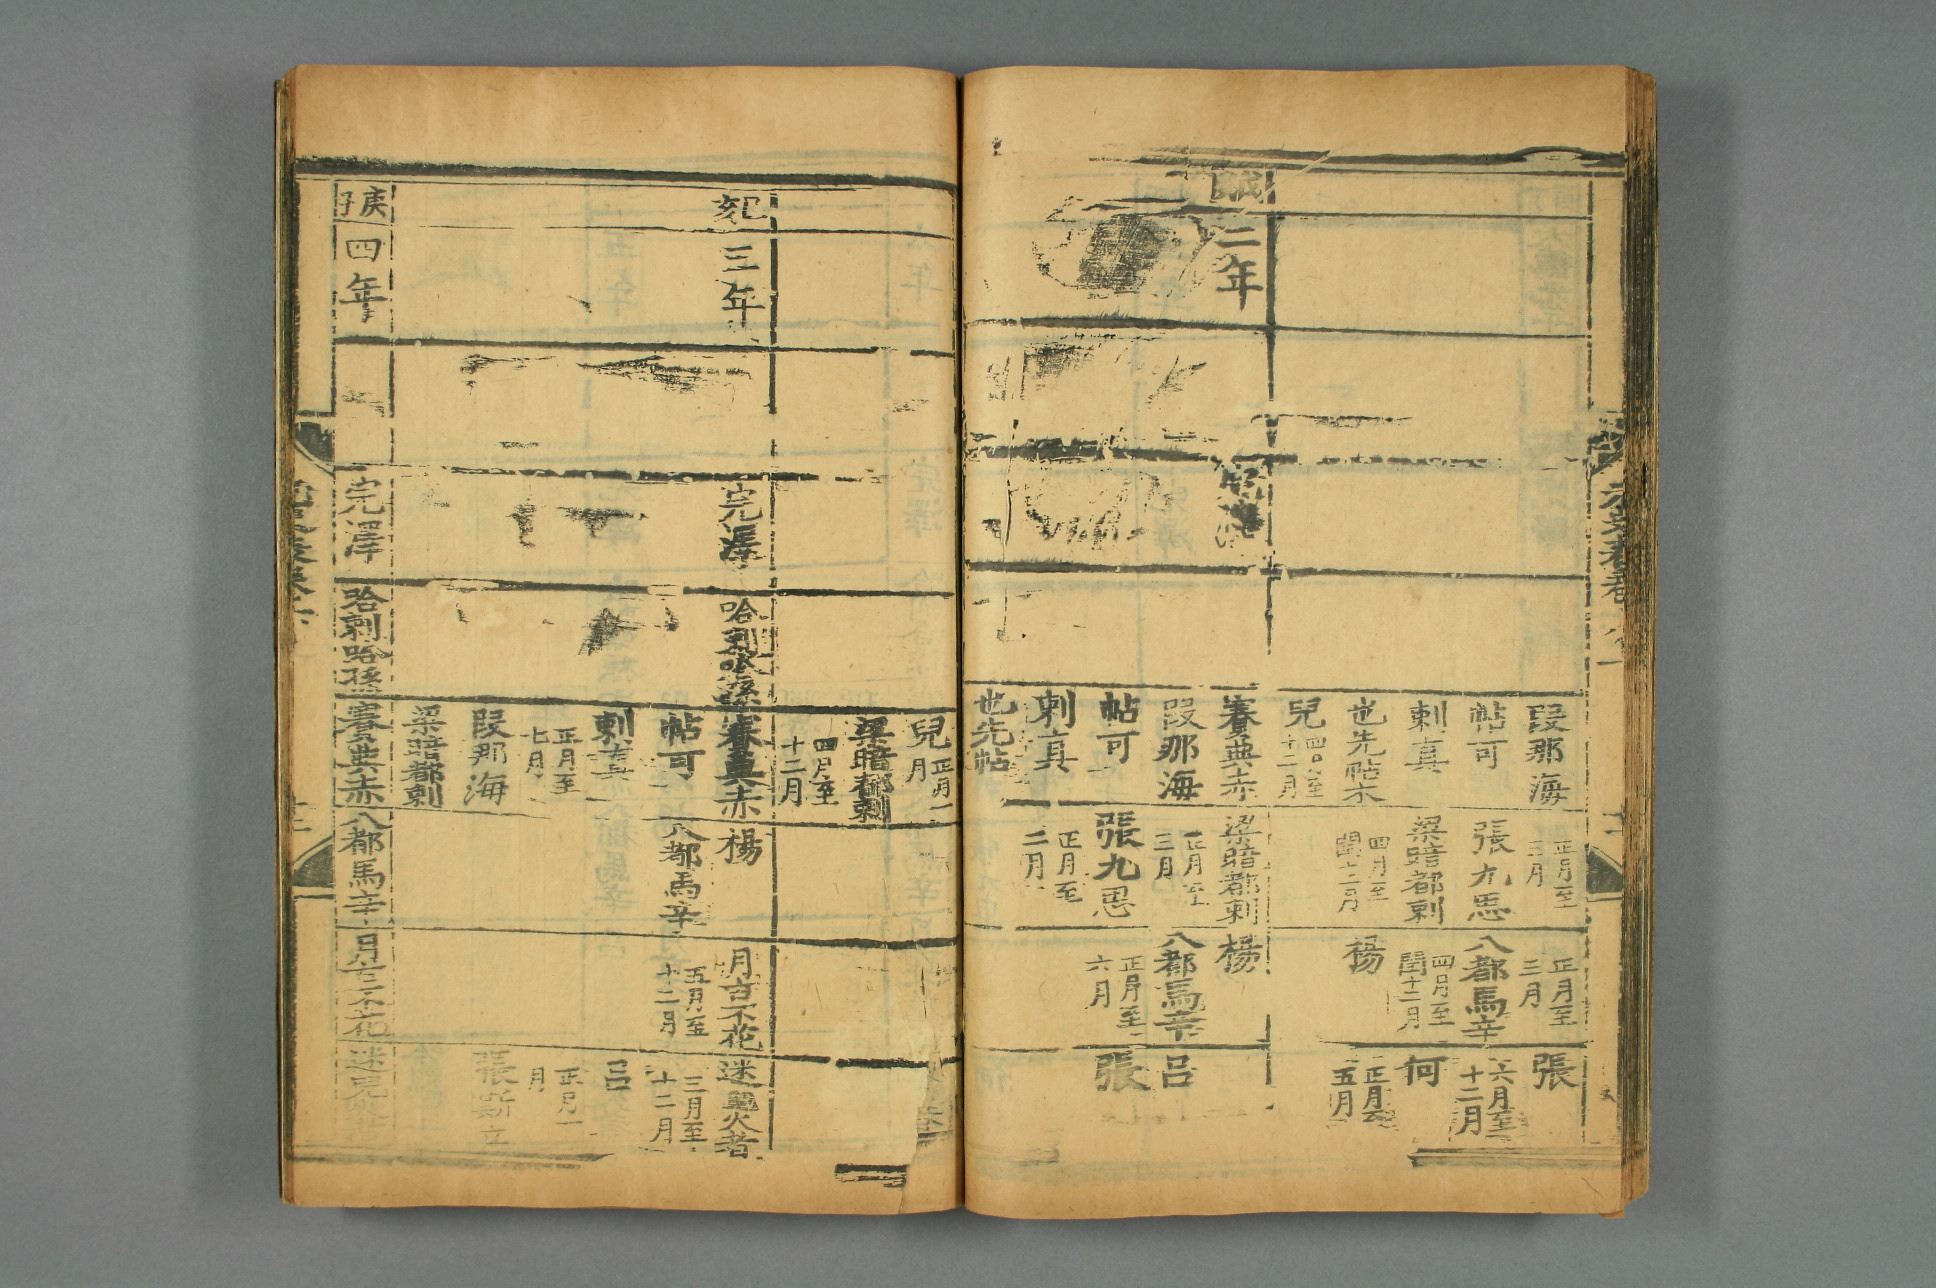 段那海
帖可
剌真
也先帖木
兒
四月至
十二月
正月至
三月
張九思
梁暗都剌
四月至
閏十二月
正月至
三月
八都馬辛
四月至
閏十二月
楊
張
六月至
十二月
何
正月至
五月
戊戌
二年
賽典赤
段那海
帖可
剌真
也先帖
梁暗都剌
正月至
三月
張九思
正月至
二月
楊
八都馬辛
正月至
六月
呂
張
兒
正月
月
梁暗都剌
四月至
十二月
己亥
三年
完澤
哈剌哈孫
賽典赤
帖可
剌真
正月至
七月
段那海
梁暗都剌
楊
八都馬辛
月古不花
五月至
十二月
迷兒火者
三月至
十二月
呂
正月
月
張斯立
庚子
四年
完澤
哈剌哈孫
賽典赤
八都馬辛
月古不花
迷兒火者